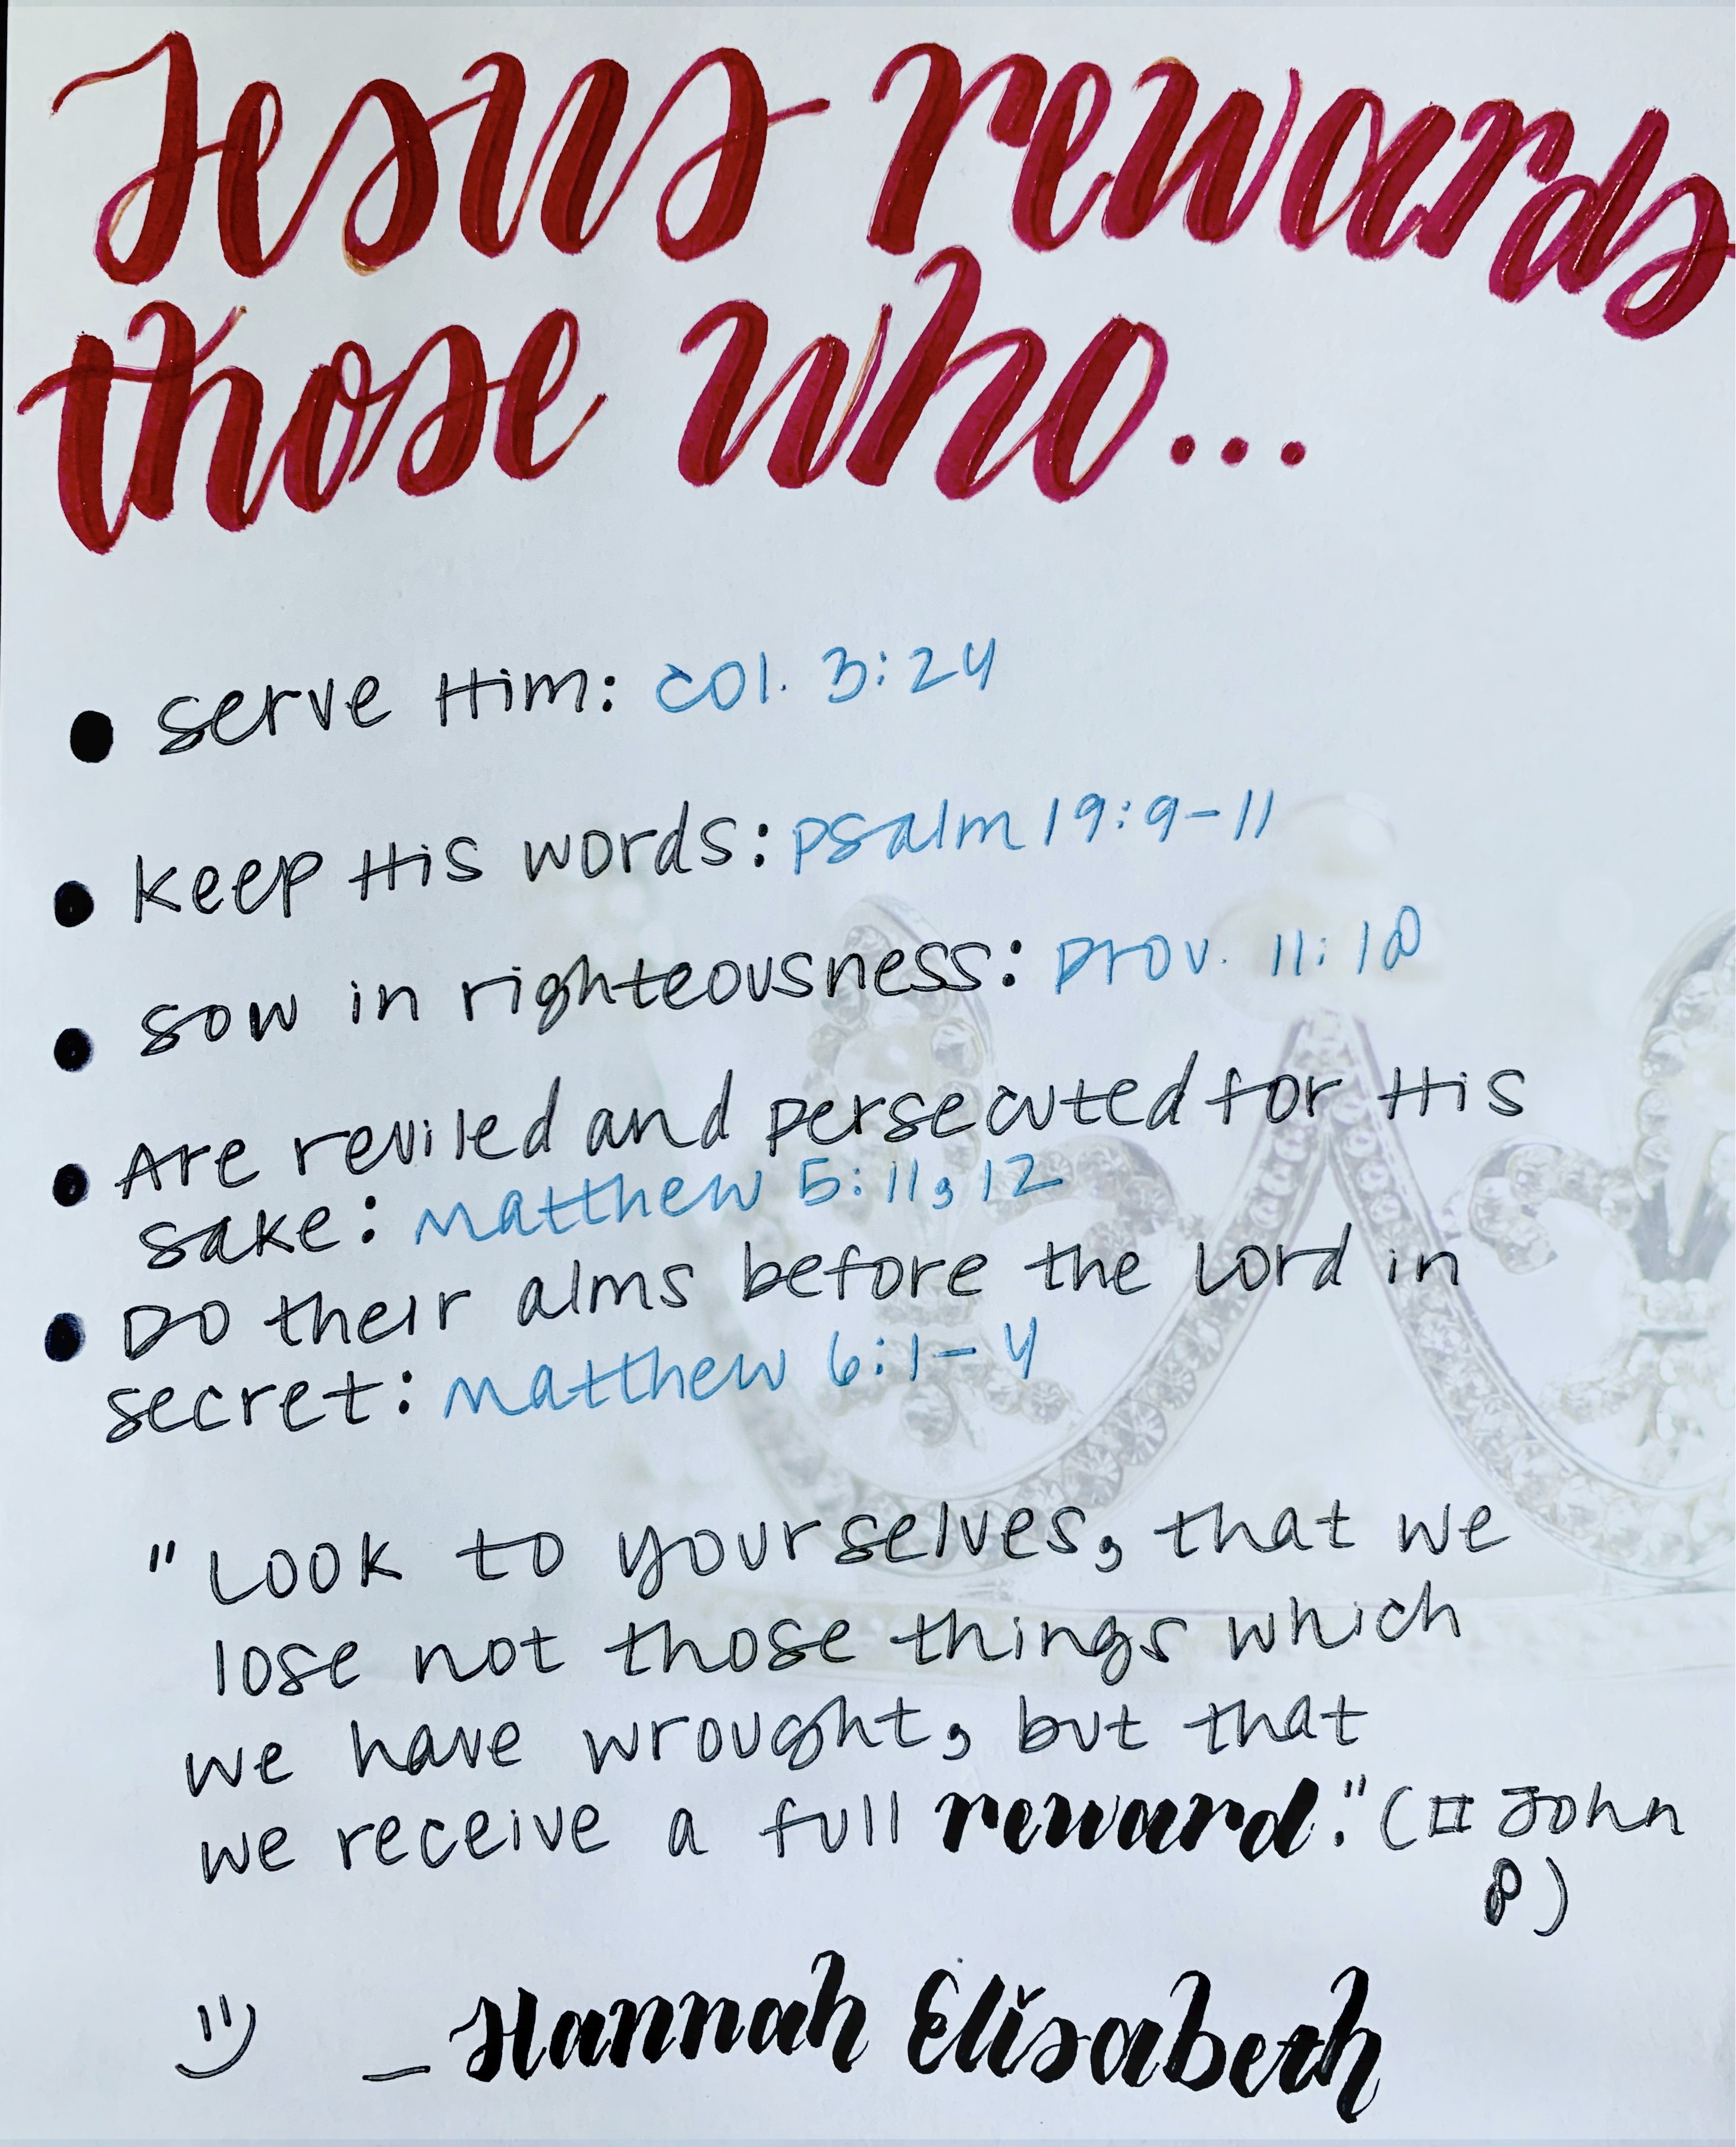 Jesus rewards
those who...
• Serve Him: Col. 3:24
• Keep His words: Psalm 19:9-11
• Sow in righteousness: Prov. 11:18
• Are reviled and persecuted for His
sake: Matthew 5:11,12
• Do their alms before the Lord in
secret: Matthew 6:1-4
"Look to yourselves, that we
lose not those things which
we have wrought, but that
we receive a full reward." (II John
8)
:) - Hannah Elisabeth